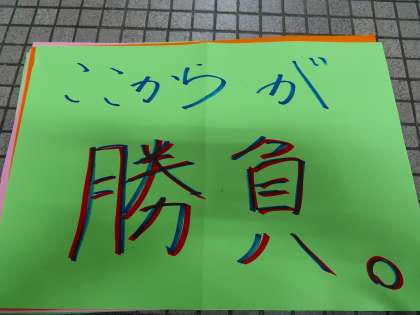 ここからが
勝負。